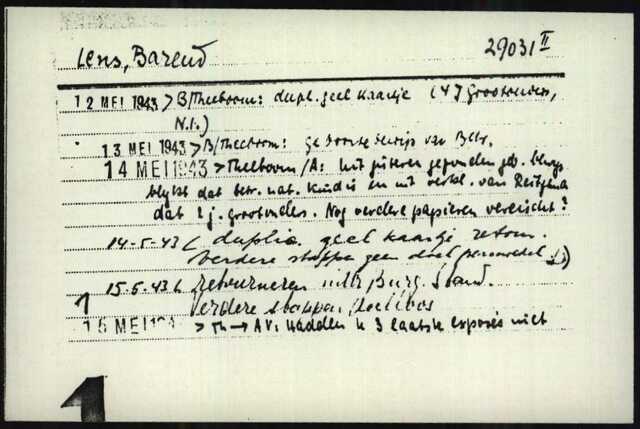 Lens, Barend 29031 II
12 MEI 1943 > B/Theeboom: dupl. geel kaartje (4 J grootouders,
N.I.)
13 MEI 1943 > B/Theeboom: geboortebewijs van Betr.
14 MEI 1943 > Theeboom/A: Uit gisteren gevonden geb. bewijs
blijkt dat betr. nat. kind is en uit verkl. van
dat 2 j. grootouders. Nog verdere papieren vereischt?
14-5-43 ( duplic. geel kaartje retour.
Verdere stappen geen doel
15-5-43 ( retourneren uittr Burg. Stand.
Verdere stappen doelloos
15 MEI 194 > Th → AV: Hadden 3 laatste exposés niet
1
1